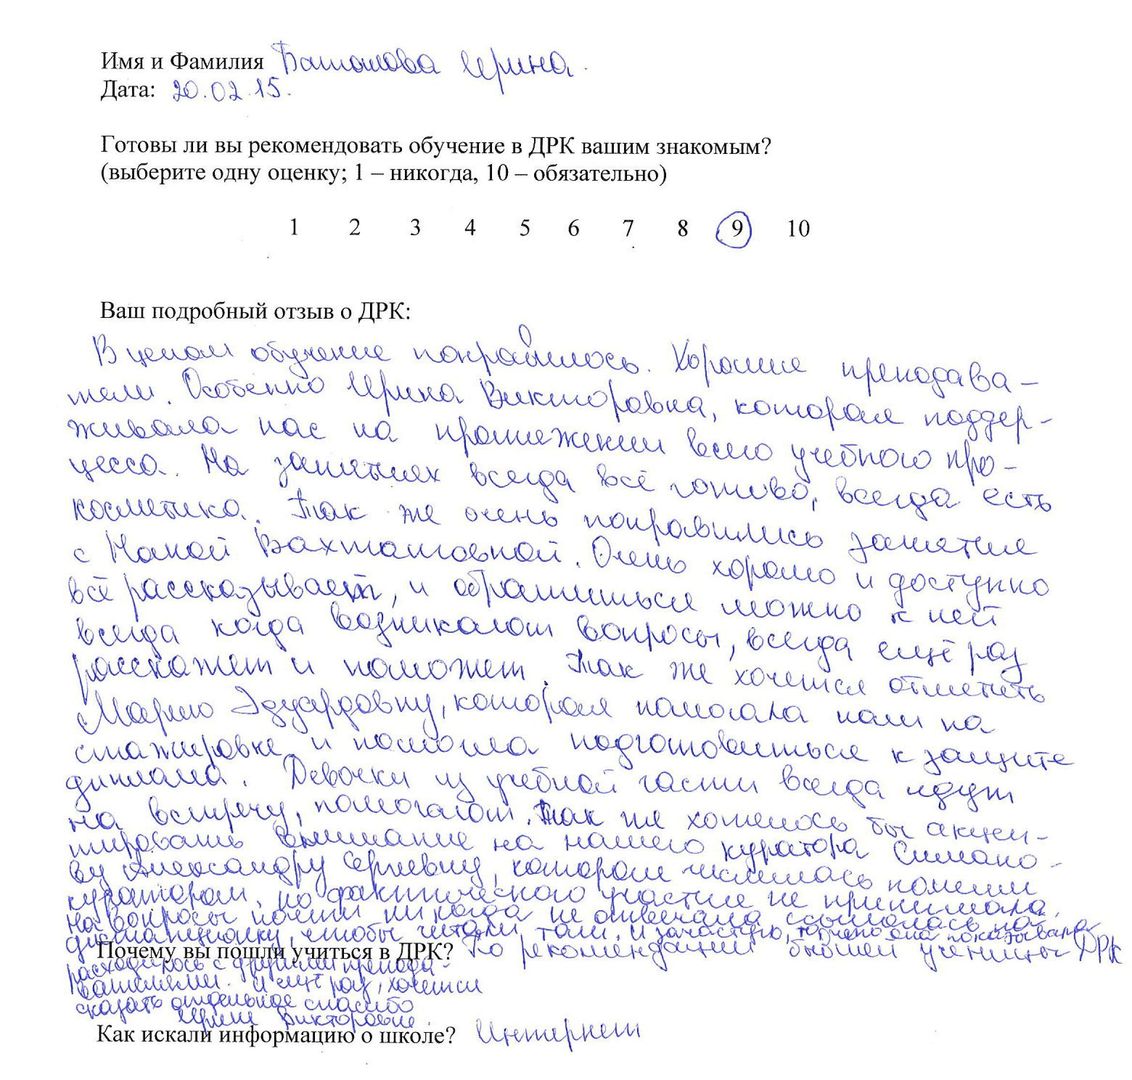 Имя и Фамилия Баталова Ирина.
Дата: 20.02.15.
Готовы ли вы рекомендовать обучение в ДРК вашим знакомым?
(выберите одну оценку; 1 – никогда, 10 – обязательно)
1 2 3 4 5 6 7 8 9 10
Ваш подробный отзыв о ДРК:
В целом обучение понравилось. Хорошие преподава-
тели. Особенно Ирина Викторовна, которая поддер-
живала нас на протяжении всего учебного про-
цесса. На занятиях всегда всё готово, всегда есть
косметика. Так же очень понравились занятия
с Наной Вахтанговной. Очень хорошо и доступно
всё рассказывает, и обратиться можно к ней
всегда когда возникают вопросы, всегда ещё раз
расскажет и поможет. Так же хочется отметить
Марию Эдуардовну, которая помогала нам на
стажировке и помогла подготовиться к защите
диплома. Девочки из учебной части всегда идут
на встречу, помогают. Так же хотелось бы акцен-
тировать внимание на нашего куратора Симано-
ву Александру Сергеевну, которая числилась нашим
куратором, но фактического участия не принимала,
на вопросы почти никогда не отвечала, ссылалась на
дистанционку, чтобы читали там, и зачастую, то что она показывала
Почему вы пошли учиться в ДРК? По рекомендации бывшей ученицы ДРК
расходилось с другими препода-
вателями. И ещё раз, хочется
сказать отдельное спасибо
Ирине Викторовне.
Как искали информацию о школе? Интернет